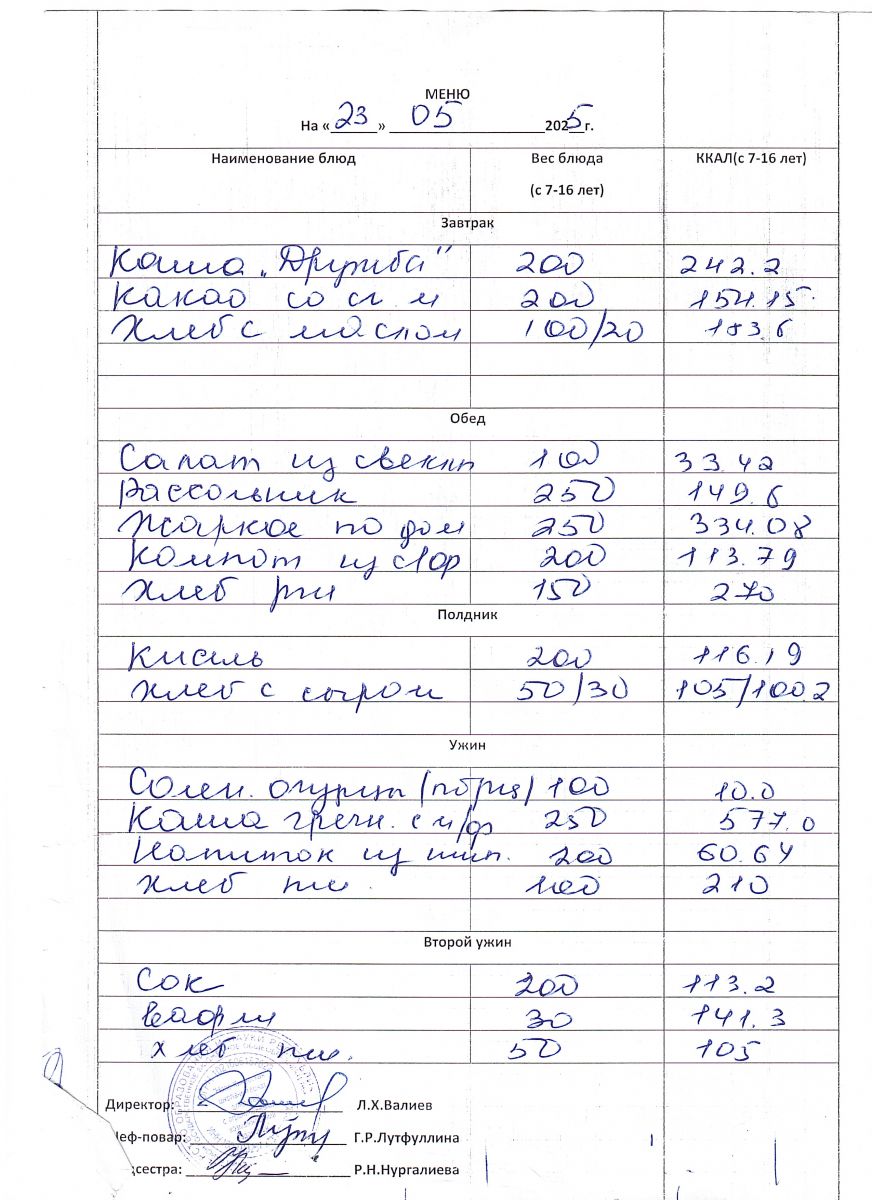 МЕНЮ
На «23» 05 2025 г.
Наименование блюд Вес блюда ККАЛ(с 7-16 лет)
(с 7-16 лет)
Завтрак
Каша „Дружба" 200 242.2
Какао со сг м 200 154.15
Хлеб с маслом 100/20 183.6
Обед
Салат из свеклы 100 33.42
Рассольник 250 149.6
Жаркое по дом 250 334.08
Компот из с/фр 200 113.79
Хлеб рж 150 270
Полдник
Кисель 200 116.19
Хлеб с сыром 50/30 105/100.2
Ужин
Солен. огурцы 100 10.0
Каша гречн. с м/ф 250 577.0
Напиток из шип. 200 60.64
Хлеб пш. 100 210
Второй ужин
Сок 200 113.2
Вафли 30 141.3
Хлеб пш. 50 105
Директор: Л.Х.Валиев
еф-повар: Г.Р.Лутфуллина
сестра: Р.Н.Нургалиева